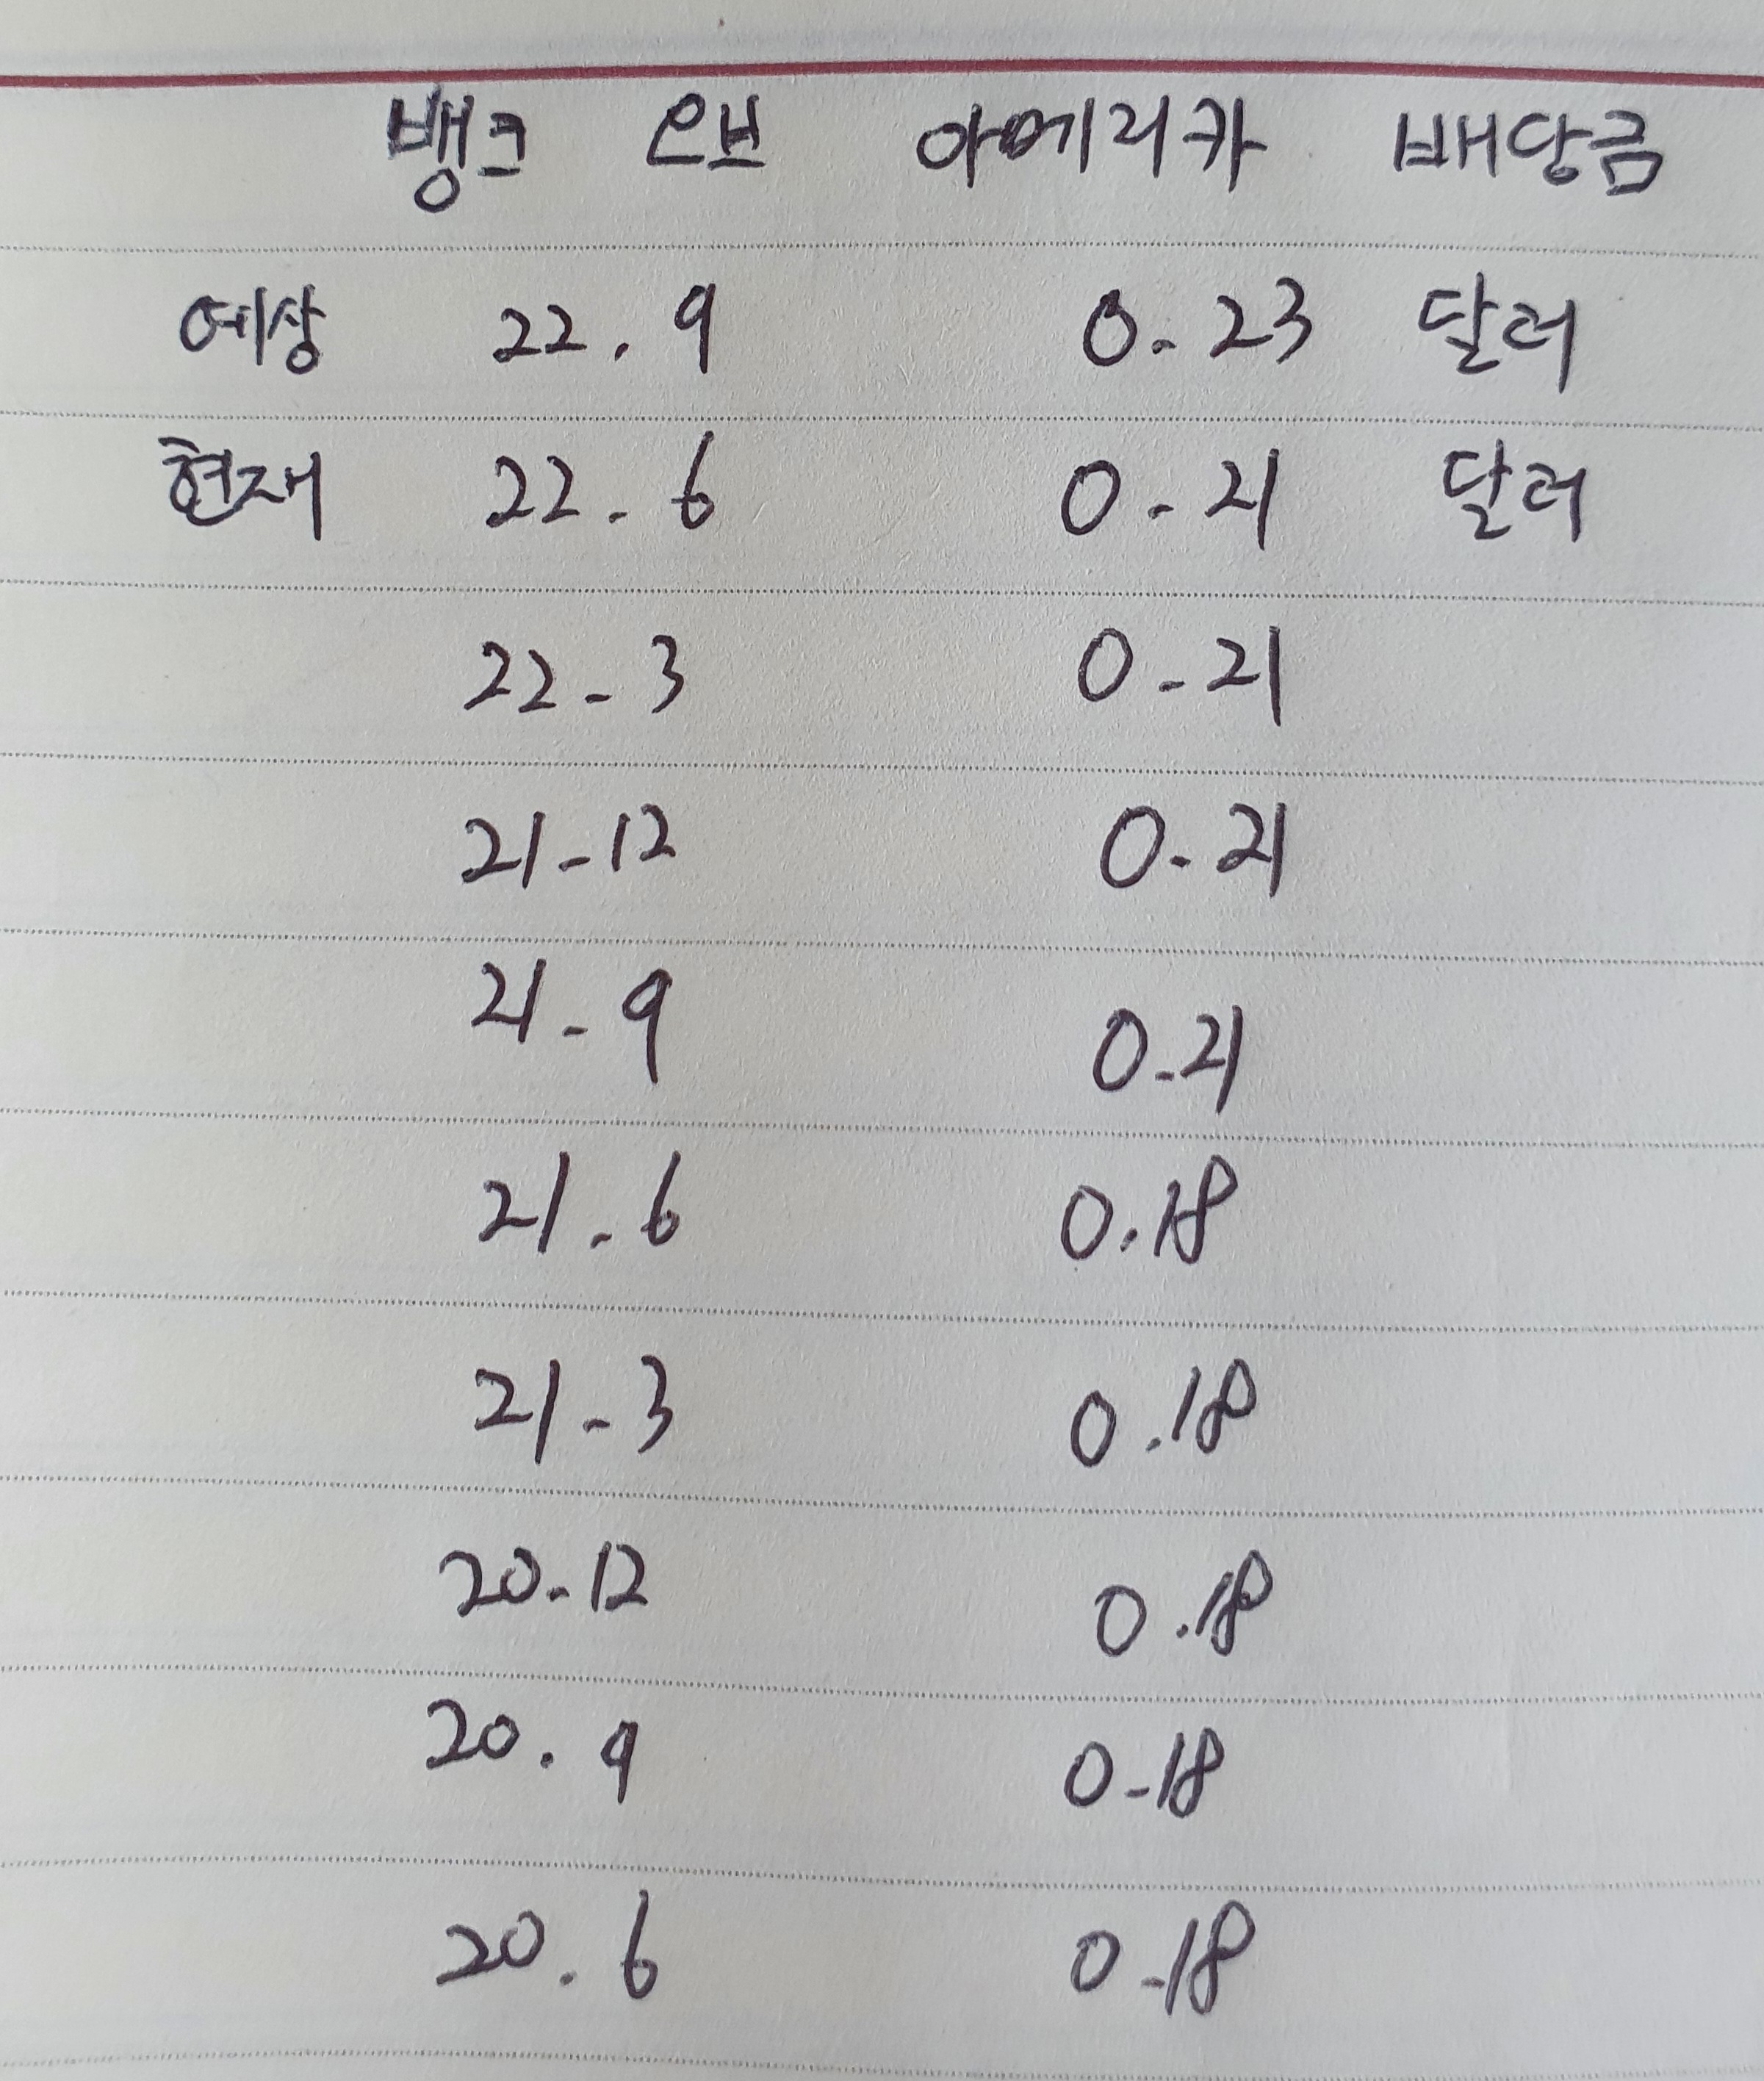 뱅크 오브 아메리카 배당금
예상 22. 9 0. 23 달러
현재 22. 6 0. 21 달러
22. 3 0. 21
21. 12 0. 21
21. 9 0. 21
21. 6 0.18
21. 3 0.18
20. 12 0.18
20. 9 0.18
20. 6 0.18